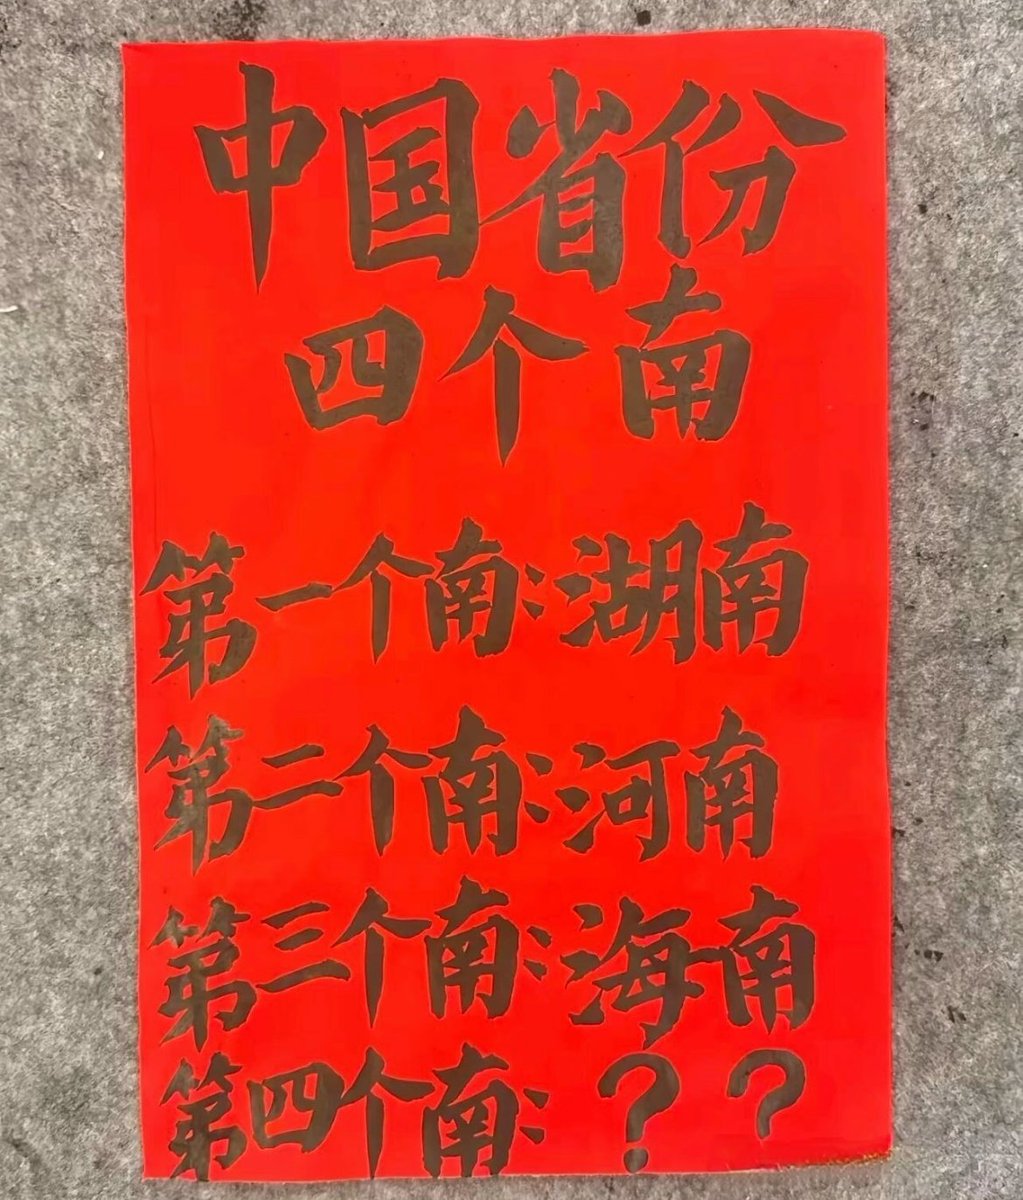 中国省份
四个南
第一个南:湖南
第二个南:河南
第三个南:海南
第四个南:??